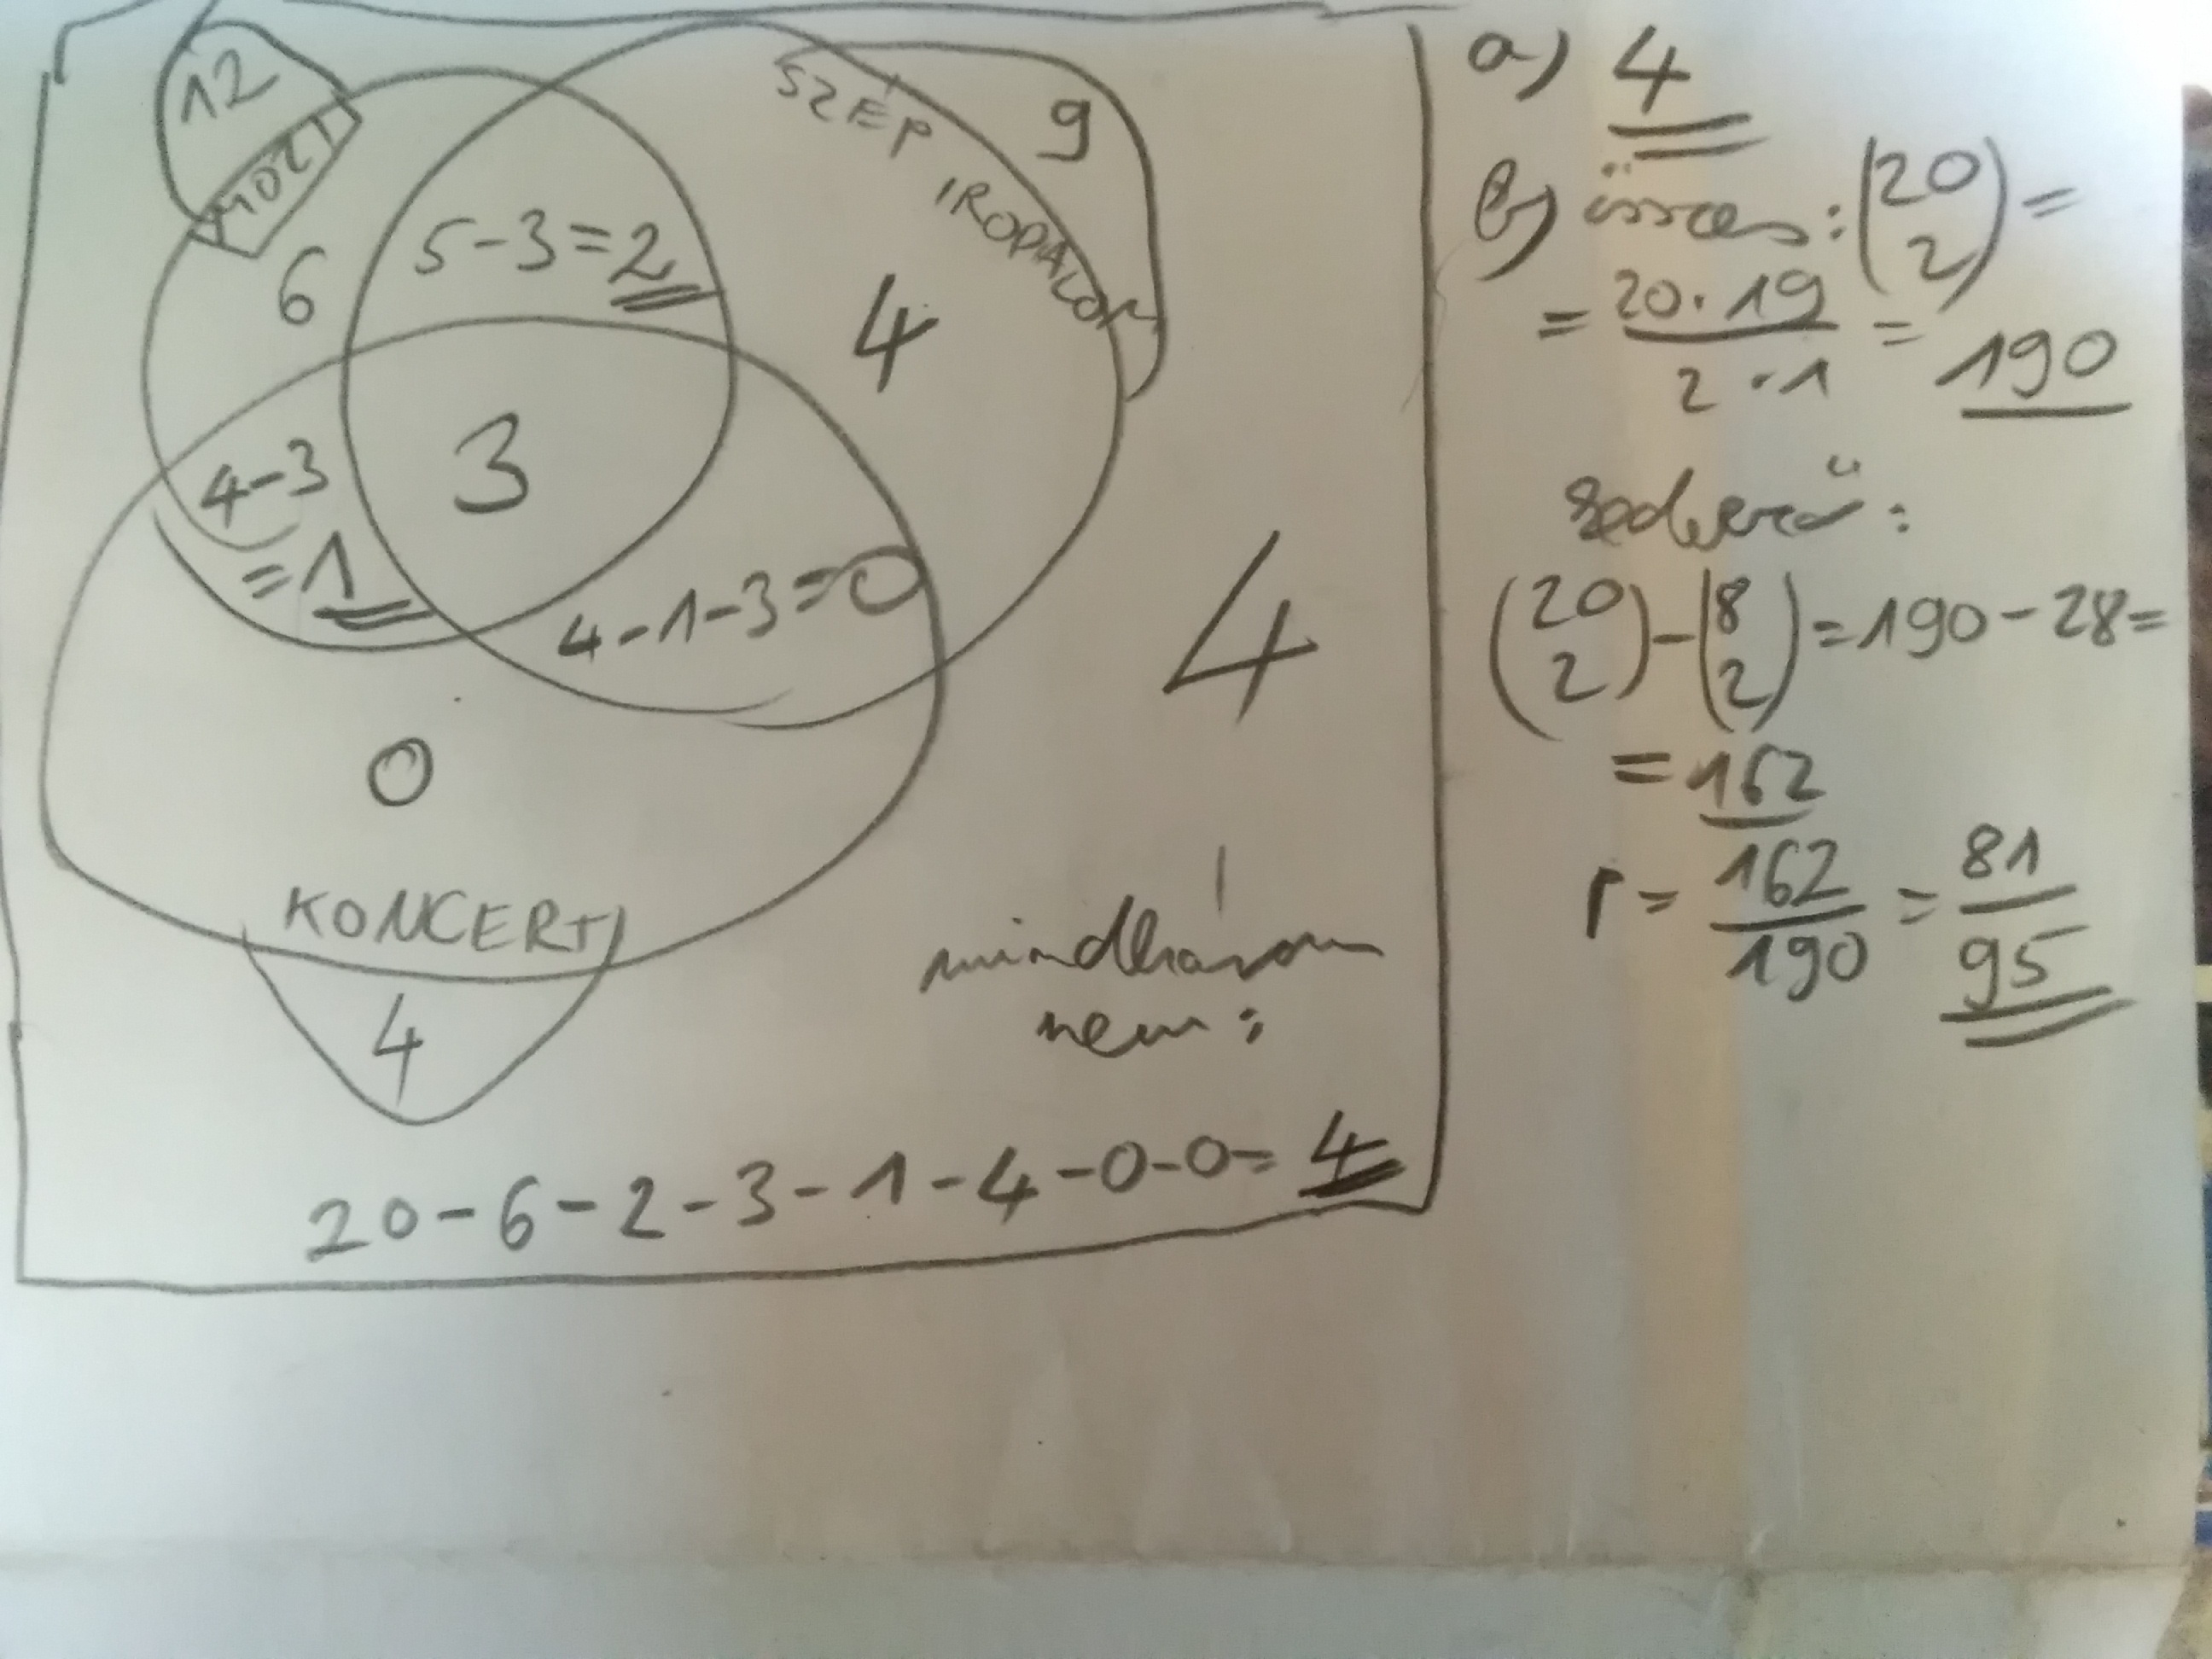 12
MOZI
SZÉP
IRODALOM
9
6
5-3=2
4
4-3
=1
3
4-1-3=0
4
0
KONCERT
4
mindhárom
nem:
20-6-2-3-1-4-0-0=4
a) 4
b) összes: (20 2) =
= 20·19 / 2·1 = 190
kedvező:
(20 2) - (8 2) = 190-28=
= 162
P = 162/190 = 81/95